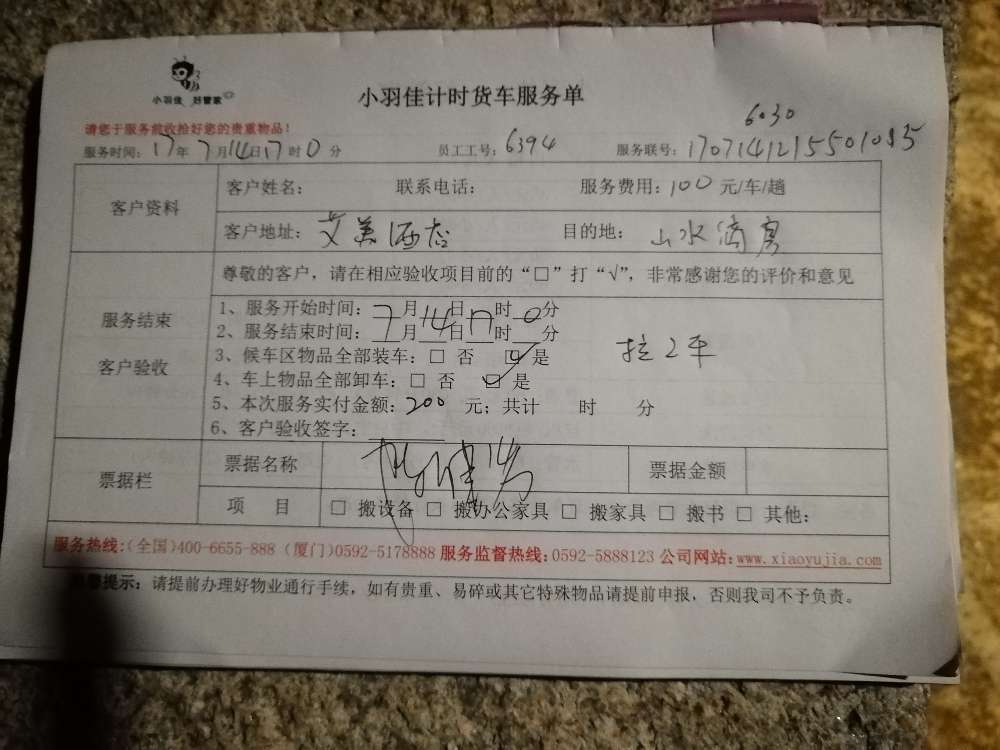 小羽佳 好管家
小羽佳计时货车服务单
请您于服务前收拾好您的贵重物品！
6030
服务时间：17年7月14日17时0分 员工工号：6394 服务联号：1707141215501085
客户资料
客户姓名： 联系电话： 服务费用：100元/车/趟
客户地址：艾美酒店 目的地：山水
尊敬的客户，请在相应验收项目前的“□”打“√”，非常感谢您的评价和意见
服务结束
客户验收
1、服务开始时间：7月14日17时0分
2、服务结束时间：__月__日__时__分
3、候车区物品全部装车：□ 否 □ 是
拉2车
4、车上物品全部卸车：□ 否 ☑ 是
5、本次服务实付金额：200 元；共计 时 分
6、客户验收签字：
票据栏
票据名称 票据金额
项 目 □ 搬设备 □ 搬办公家具 □ 搬家具 □ 搬书 □ 其他：
服务热线：(全国)400-6655-888 (厦门)0592-5178888 服务监督热线：0592-5888123 公司网站：www.xiaoyujia.com
提示：请提前办理好物业通行手续，如有贵重、易碎或其它特殊物品请提前申报，否则我司不予负责。